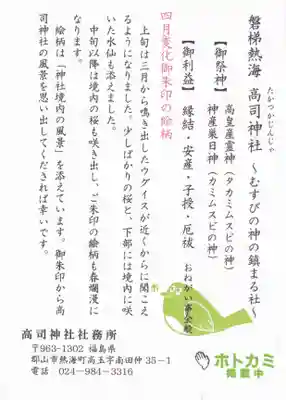 磐梯熱海 高司神社 ～むすびの神の鎮まる社～
たかつかじんじゃ
【御祭神】
高皇産霊神（タカミムスビの神）
神産巣日神（カミムスビの神）
【御利益】 縁結・安産・子授・厄祓
四月変化御朱印の絵柄
上旬は三月から鳴き出したウグイスが近くからに聞こえ
るようになりました。少しばかりの桜と、下部には境内に咲
いた水仙も添えました。
中旬以降は境内の桜も咲き出し、ご朱印の絵柄も春爛漫に
なります。
絵柄は「神社境内の風景」を添えています。御朱印から高
司神社の風景を思い出してくだされば幸いです。
高司神社社務所
〒963-1302 福島県
郡山市熱海町高玉字南田仲35－1
電話 024-984-3316
ホトカミ
掲載中